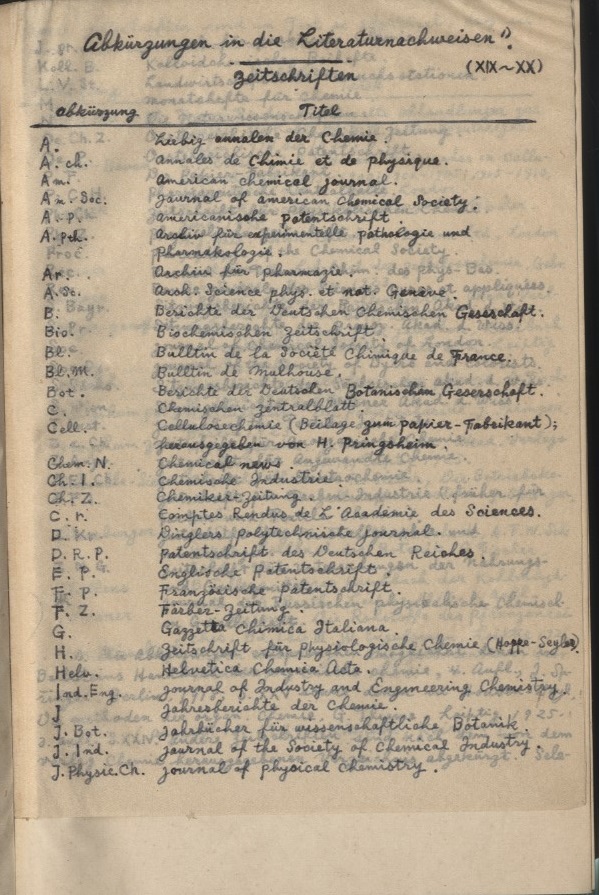 Abkürzungen in die Literaturnachweisen 1).
Zeitschriften (XIX~XX)
abkürzung Titel
A. Liebig annalen der Chemie.
A. ch. Annales de Chimie et de physique.
Am. American chemical journal.
Am. Soc. Journal of american Chemical Society.
A. P. americanische patentschrift.
A. pch. Archiv für experimentelle pathologie und
pharmakologie
Ar. Archiv für pharmazie
A. St. Arch. Science phys. et nat. Genève.
B. Berichte der Deutschen Chemischen Geserschaft.
Bio. Biochemischen Zeitschrift.
Bl. Bulltin de la Société Chimique de France.
Bl. M. Bulltin de Mulhouse.
Bot. Berichte der Deutschen Botanischen Geserschaft.
C. Chemischen Zentralblatt.
Cell. Cellulosechemie (Beilage zum papier-Fabrikant);
herausgegeben von H. Pringsheim.
Chem. N. Chemical news.
Ch. I. Chemische Industrie
Ch. Z. Chemiker-Zeitung.
C. r. Comptes Rendus de L'Academie des Sciences.
D. Dinglers polytechnische journal.
D. R. P. patentschrift des Deutschen Reiches.
E. P. Englische patentschrift.
F. P. Französische patentschrift.
F. Z. Färber-Zeitung.
G. Gazzetta Chimica Italiana.
H. Zeitschrift für physiologische Chemie (Hoppe-Seyler).
Helv. Helvetica Chemica Acta.
Ind. Eng. journal of Industry and Engineering Chemistry.
J Jahresberichte der Chemie.
J. Bot. Jahrbücher für wissenschaftliche Botanik
J. Ind. journal of the Society of Chemical Industry.
J. Physic. Ch. journal of physical chemistry.